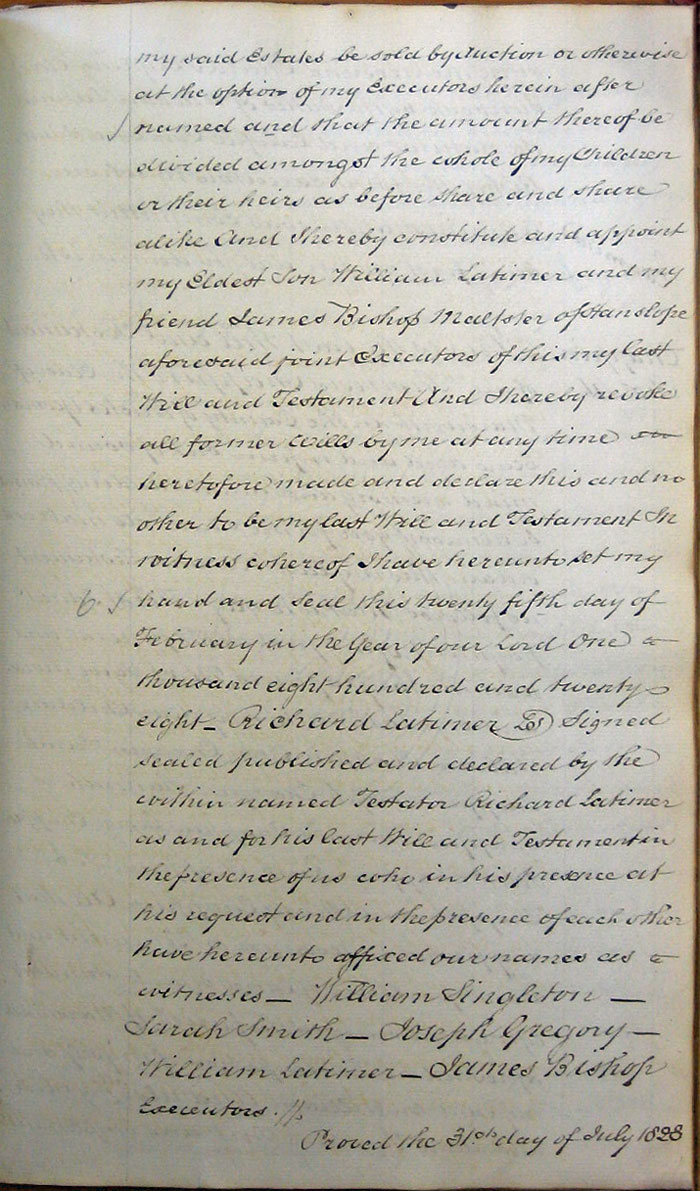 my said Estates be sold by Auction or otherwise
at the option of my Executors herein after
named and that the amount thereof be
divided amongst the whole of my Children
or their heirs as before share and share
alike And I hereby constitute and appoint
my Eldest Son William Latimer and my
friend James Bishop Maltster of Hanslope
aforesaid joint Executors of this my last
Will and Testament And I hereby revoke
all former Wills by me at any time
heretofore made and declare this and no
other to be my last Will and Testament In
witness whereof I have hereunto set my
6. hand and seal this twenty fifth day of
February in the Year of our Lord One
thousand eight hundred and twenty
eight – Richard Latimer (LS) Signed
sealed published and declared by the
within named Testator Richard Latimer
as and for his last Will and Testament in
the presence of us who in his presence at
his request and in the presence of each other
have hereunto affixed our names as
witnesses – William Singleton –
Sarah Smith – Joseph Gregory –
William Latimer – James Bishop
Executors.
Proved the 31st day of July 1828